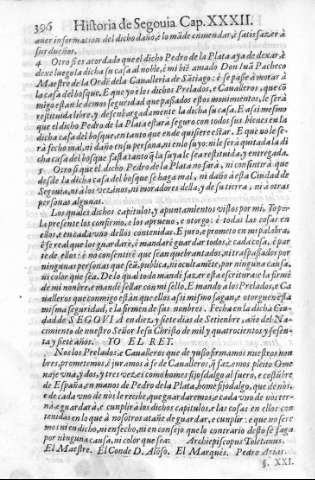 396 Historia de Segouia Cap. XXXII.
auer informacion del dicho daño, è lo mãde enmendar, è satisfazer à
sus dueños.
4 Otrosi es acordado que el dicho Pedro de la Plata aya de dexar, è
dexe luego la dicha su casa al noble, è mi biẽ amado Don Iuã Pacheco
Maestre de la Ordẽ de la Caualleria de Sãtiago: è se passe à morar à
la casa del bosque. E que yo è los dichos Prelados, è Caualleros, que cõ
migo estan le demos seguridad que passados estos mouimientos, le serà
restituida libre, y desembargadamente la dicha su casa. E assimesmo
que el dicho Pedro de la Plata estarà seguro con todos sus bienes en la
dicha casa del bosque, en tanto que ende quisiere estar. E que no le se-
rà fecho mal, ni daño en su persona, ni en lo suyo: ni le serà quitada la di
cha casa del bosque fasta tanto q̃ la suya le sea restituida, y entregada.
5 Otrosi que el dicho Pedro de la Plata no farà, ni consentirà que
desde la dicha casa del bosque se haga mal, ni daño à esta Ciudad de
Segouia, ni à los vezinos, ni moradores della, y de su tierra, ni à otras
personas algunas.
Los quales dichos capitulos, y apuntamientos vistos por mi, Yo por
la presente los confirmo, è los aprueuo, è otorgo: è todas las cosas en
ellos, è en cada vno dellos contenidas. E juro, è prometo en mi palabra,
è fe real que los guardarè, è mandarè guardar todos, è cada cosa, è par
te de ellos: è no consentirè que sean quebrantados, ni traspassados por
ningunas personas que sea, publica, ni ocultamẽte, por ninguna causa,
ni color que sea. De lo qual todo mandè fazer esta escritura: è la firmè
de mi nombre, è mandè sellar con mi sello. E mando à los Prelados, è Ca
ualleros que conmigo estàn que ellos assi mismo fagan, è otorguen esta
misma seguridad, è la firmen de sus nombres. Fecha en la dicha Ciu-
dad de SEGOVIA en diez, y siete dias de Setiembre, año del Na-
cimiento de nuestro Señor Iesu Christo de mil y quatrocientos y sesen-
ta y siete años. YO EL REY.
Nos los Prelados: è Caualleros que de yuso firmamos nuestros nom
bres, prometemos, è juramos à fe de Caualleros, q̃ fazemos pleito Ome
naje vna, y dos, y tres vezes: como homes fijosdalgo al fuero, è costũbre
de España, en manos de Pedro de la Plata, home fijodalgo, que de nos,
è de cada vno de nos le recibe, que guardaremos, è cada vno de nos ter-
nà è guardarà, è cumplirà los dichos capitulos, è las cosas en ellos con
tenidas en lo que à nosotros atañe de guardar, è cumplir: è que no sere
mos ni en dicho, ni en fecho, ni en consejo que lo contrario desto se faga
por ninguna causa, ni color que sea: Archiepiscopus Toletanus.
El Maestre. El Conde D. Alõso. El Marques. Pedro Arias.
§. XXI.